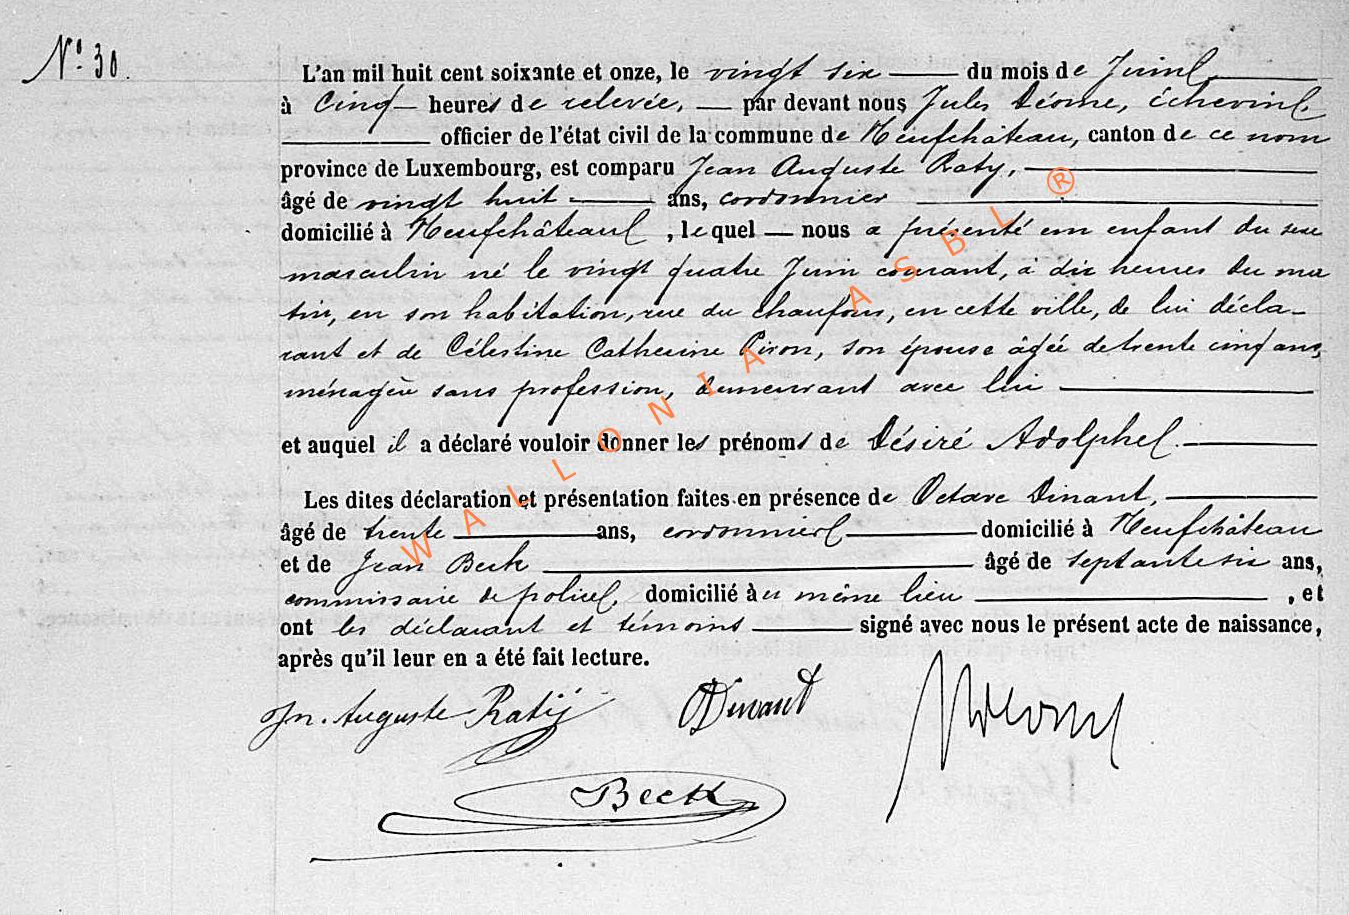 N° 30.
L'an mil huit cent soixante et onze, le vingt six du mois de Juin
à cinq heures de relevée, par devant nous Jules Déome, échevin
officier de l'état civil de la commune de Neufchâteau, canton de ce nom
province de Luxembourg, est comparu Jean Auguste Raty,
âgé de vingt huit ans, cordonnier
domicilié à Neufchâteau, lequel nous a présenté un enfant du sexe
masculin né le vingt quatre Juin courant, à dix heures du ma
tin, en son habitation, rue du Chaufour, en cette ville, de lui décla-
rant et de Célestine Catherine Piron, son épouse âgée de trente cinq ans,
ménagère sans profession, demeurant avec lui
et auquel il a déclaré vouloir donner les prénoms de Désiré Adolphe
Les dites déclaration et présentation faites en présence de Octave Dinant,
âgé de trente ans, cordonnier domicilié à Neufchâteau
et de Jean Beck âgé de septante six ans,
commissaire de police, domicilié au même lieu, et
ont les déclarant et témoins signé avec nous le présent acte de naissance,
après qu'il leur en a été fait lecture.
Jn. Auguste Ratij ODinant
Beck
WALLONIA ASBL ®